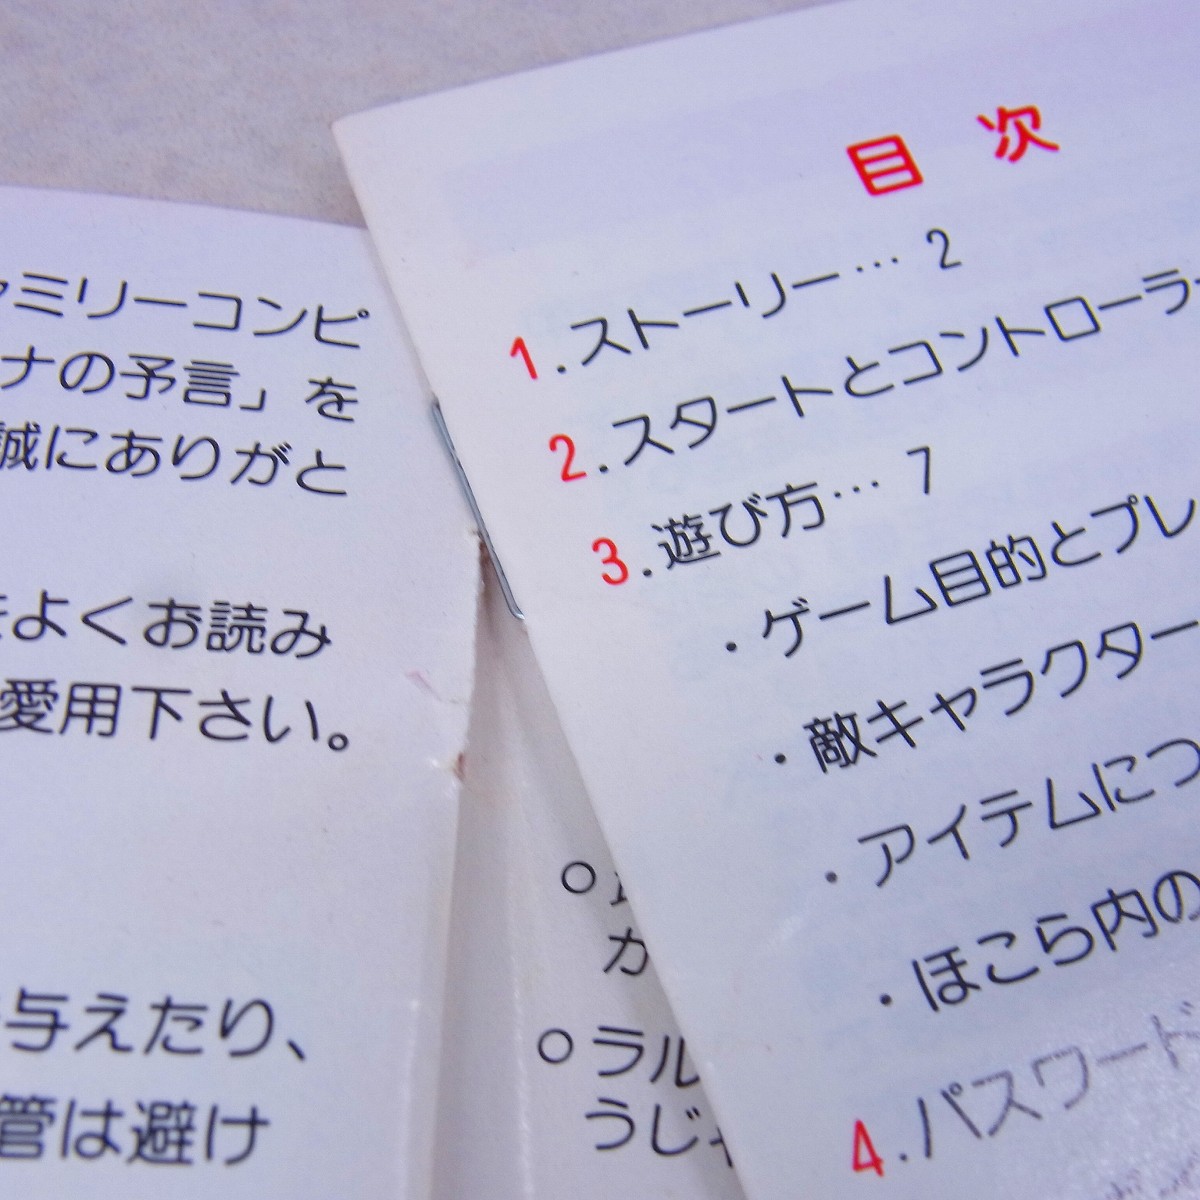 ァミリーコンピ
ナの予言」を
誠にありがと
をよくお読み
愛用下さい。
与えたり、
管は避け
○
か
○ラル
うじゃ
目 次
1.ストーリー… 2
2.スタートとコントローラー
3.遊び方… 7
・ゲーム目的とプレ
・敵キャラクター
・アイテムにつ
・ほこら内の
4.パスワード